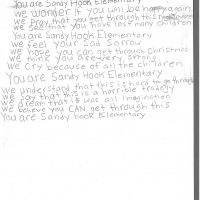 You are Sandy Hook Elementary
we wonder if you will be happy again
we Pray that you get through this
we see you have lost many children
You are Sandy Hook Elementary
we feel your Sad Sorrow
we hope you can get through Christmas
we think you are very strong
we Cry because of all the children
You are Sandy Hook Elementary
we understand that this is hard to go through
we say that this is a horrible tradegy
we dream that it was all imagination
we believe you CAN get through this
You are Sandy hook Elementary